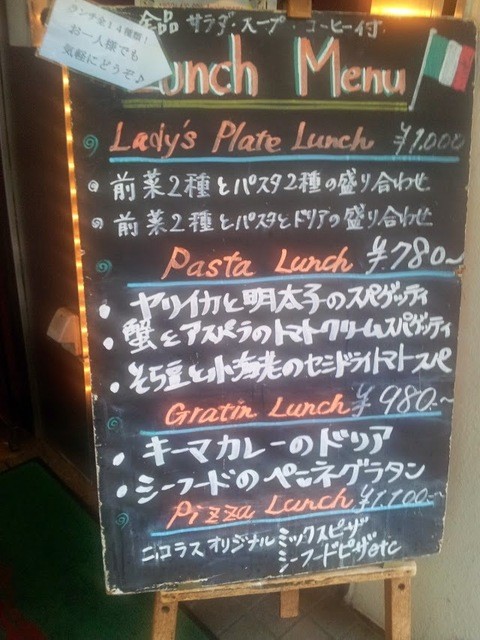 ランチ全14種類!
お一人様でも
気軽にどうぞ♪
全品 サラダ・スープ・コーヒー付
Lunch Menu
Lady's Plate Lunch ¥1,000
前菜2種とパスタ2種の盛り合わせ
前菜2種とパスタとドリアの盛り合わせ
Pasta Lunch ¥780~
・ヤリイカと明太子のスパゲッティ
・蟹とアスパラのトマトクリームスパゲッティ
・そら豆と小海老のセミドライトマトスパ
Gratin Lunch ¥980~
・キーマカレーのドリア
・シーフードのペンネグラタン
Pizza Lunch ¥1,100~
ニコラスオリジナル ミックスピザ
シーフードピザetc